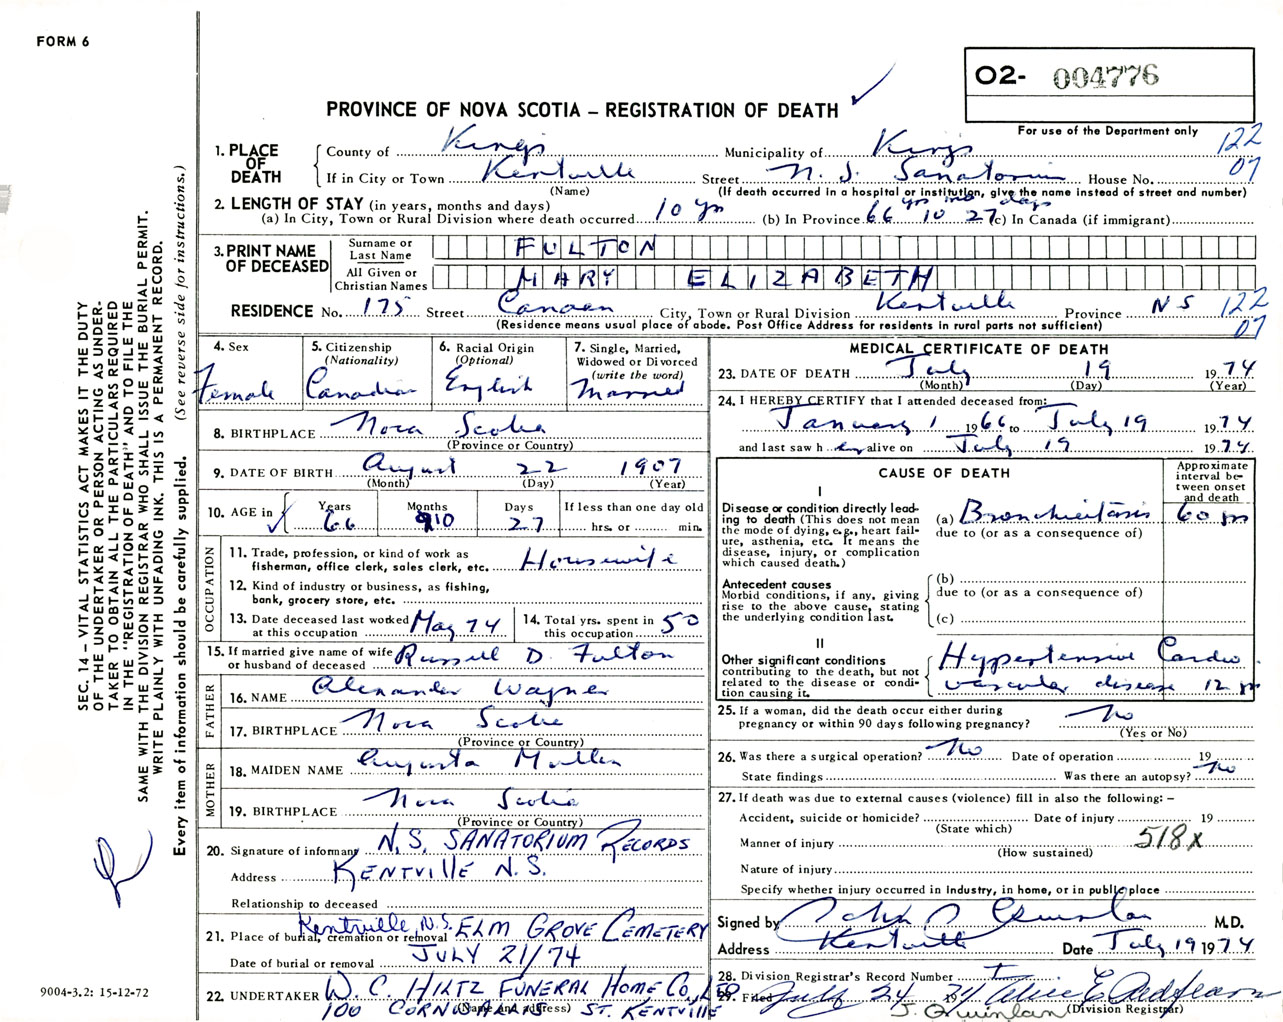 FORM 6
O2- 004776
PROVINCE OF NOVA SCOTIA – REGISTRATION OF DEATH
For use of the Department only
122
07
1. PLACE OF DEATH
County of Kings Municipality of Kings
If in City or Town Kentville Street N. S. Sanatorium House No.
(Name) (If death occurred in a hospital or institution, give the name instead of street and number)
2. LENGTH OF STAY (in years, months and days) yrs mo days
(a) In City, Town or Rural Division where death occurred 10 yrs (b) In Province 66 10 27 (c) In Canada (if immigrant)
3. PRINT NAME OF DECEASED
Surname or Last Name FULTON
All Given or Christian Names MARY ELIZABETH
RESIDENCE No. 175 Street Canaan City, Town or Rural Division Kentville Province N S 122
(Residence means usual place of abode. Post Office Address for residents in rural parts not sufficient) 07
4. Sex Female
5. Citizenship (Nationality) Canadian
6. Racial Origin (Optional) English
7. Single, Married, Widowed or Divorced (write the word) Married
8. BIRTHPLACE Nova Scotia
(Province or Country)
9. DATE OF BIRTH August 22 1907
(Month) (Day) (Year)
10. AGE in Years 66 Months 10 Days 27 If less than one day old hrs. or min.
OCCUPATION
11. Trade, profession, or kind of work as fisherman, office clerk, sales clerk, etc. Housewife
12. Kind of industry or business, as fishing, bank, grocery store, etc.
13. Date deceased last worked at this occupation May 74
14. Total yrs. spent in this occupation 50
15. If married give name of wife or husband of deceased Russell D. Fulton
FATHER
16. NAME Alexander Wagner
17. BIRTHPLACE Nova Scotia
(Province or Country)
MOTHER
18. MAIDEN NAME Augusta Mullen
19. BIRTHPLACE Nova Scotia
(Province or Country)
20. Signature of informant N.S. SANATORIUM RECORDS
Address KENTVILLE N.S.
Relationship to deceased
21. Place of burial, cremation or removal Kentville, N.S. ELM GROVE CEMETERY
Date of burial or removal JULY 21/74
22. UNDERTAKER W. C. HILTZ FUNERAL HOME CO., LTD
(Name and address) 100 CORNWALLIS ST. KENTVILLE
MEDICAL CERTIFICATE OF DEATH
23. DATE OF DEATH July 19 1974
(Month) (Day) (Year)
24. I HEREBY CERTIFY that I attended deceased from:
January 1 1966 to July 19 1974
and last saw h er alive on July 19 1974
CAUSE OF DEATH
Approximate interval between onset and death
I
Disease or condition directly leading to death (This does not mean the mode of dying, e.g., heart failure, asthenia, etc. It means the disease, injury, or complication which caused death.)
(a) Bronchiectasis 60 yrs
due to (or as a consequence of)
Antecedent causes
Morbid conditions, if any, giving rise to the above cause, stating the underlying condition last.
(b)
due to (or as a consequence of)
(c)
II
Other significant conditions contributing to the death, but not related to the disease or condition causing it.
Hypertensive Cardio
vascular disease 12 yrs
25. If a woman, did the death occur either during pregnancy or within 90 days following pregnancy? No
(Yes or No)
26. Was there a surgical operation? No Date of operation 19
State findings Was there an autopsy? No
27. If death was due to external causes (violence) fill in also the following: –
Accident, suicide or homicide? Date of injury 19
(State which)
Manner of injury 518X
(How sustained)
Nature of injury
Specify whether injury occurred in Industry, in home, or in public place
Signed by John Quinlan M.D.
Address Kentville Date July 19 1974
28. Division Registrar's Record Number
29. Filed July 24 1974
J. Quinlan (Division Registrar)
SEC. 14 – VITAL STATISTICS ACT MAKES IT THE DUTY
OF THE UNDERTAKER OR PERSON ACTING AS UNDER-
TAKER TO OBTAIN ALL THE PARTICULARS REQUIRED
IN THE "REGISTRATION OF DEATH" AND TO FILE THE
SAME WITH THE DIVISION REGISTRAR WHO SHALL ISSUE THE BURIAL PERMIT.
WRITE PLAINLY WITH UNFADING INK. THIS IS A PERMANENT RECORD.
Every item of information should be carefully supplied. (See reverse side for instructions.)
9004-3.2: 15-12-72